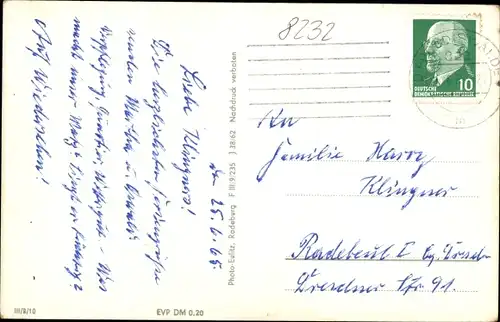 8232
DEUTSCHE
DEMOKRATISCHE REPUBLIK
10
den 25.6.65
Liebe Klingners!
Die herzlichsten Feriengrüße
senden Martha u. Oswald
Verpflegung, Quartier, Wetter gut - Was
macht unser
Auf Wiedersehen!
Photo-Eulitz, Radeberg F III/9/235 J 38/62 Nachdruck verboten
An
Familie Harry
Klingner
Radebeul I Bz. Dresden
Dresdner Str. 91.
III/8/10
EVP DM 0.20